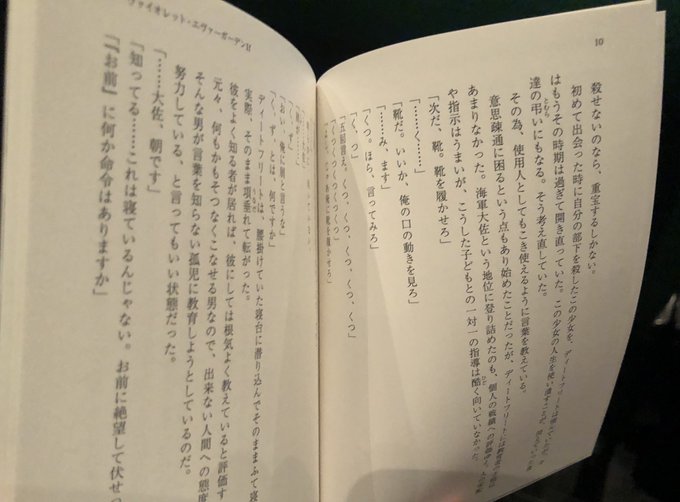 10
殺せないのなら、重宝するしかない。
初めて出会った時に自分の部下を殺したこの少女を、ディートフリートは
はもうその時期は過ぎて開き直っていた。この少女の人生を使い潰すことが、
達の弔いにもなる。そう考え直していた。
その為、使用人としてもこき使えるように言葉を教えている。
意思疎通に困るという点もあり始めたことだったが、ディートフリートには
あまりなかった。海軍大佐という地位に登り詰めたのも、個人の戦績への評価
や指示はうまいが、こうした子どもとの一対一の指導は酷く向いていなかった。
「次だ、靴。靴を履かせろ」
「靴だ。いいか、俺の口の動きを見ろ」
「……く……」
「……み、ます」
「くつ。ほら、言ってみろ」
「く、っ」
「五回言え。くつ、くつ、くつ、くつ、くつ」
「くつくつくつくつくつ」
俺に靴を履かせろ」
ヴァイオレット・エヴァーガーデンII
「おい、俺に屑と言うな」
「く、ず、とは、何ですか」
ディートフリートは、腰掛けていた寝台に潜り込んでそのままふて寝
実際、そのまま項垂れて転がった。
彼をよく知る者が居れば、彼にしては根気よく教えていると評価す
元々、何もかもそつなくこなせる男なので、出来ない人間への態度
そんな男が言葉を知らない孤児に教育しようとしているのだ。
努力している、と言ってもいい状態だった。
「……大佐、朝です」
「知ってる……これは寝ているんじゃない。お前に絶望して伏せっ
「『お前』に何か命令はありますか」